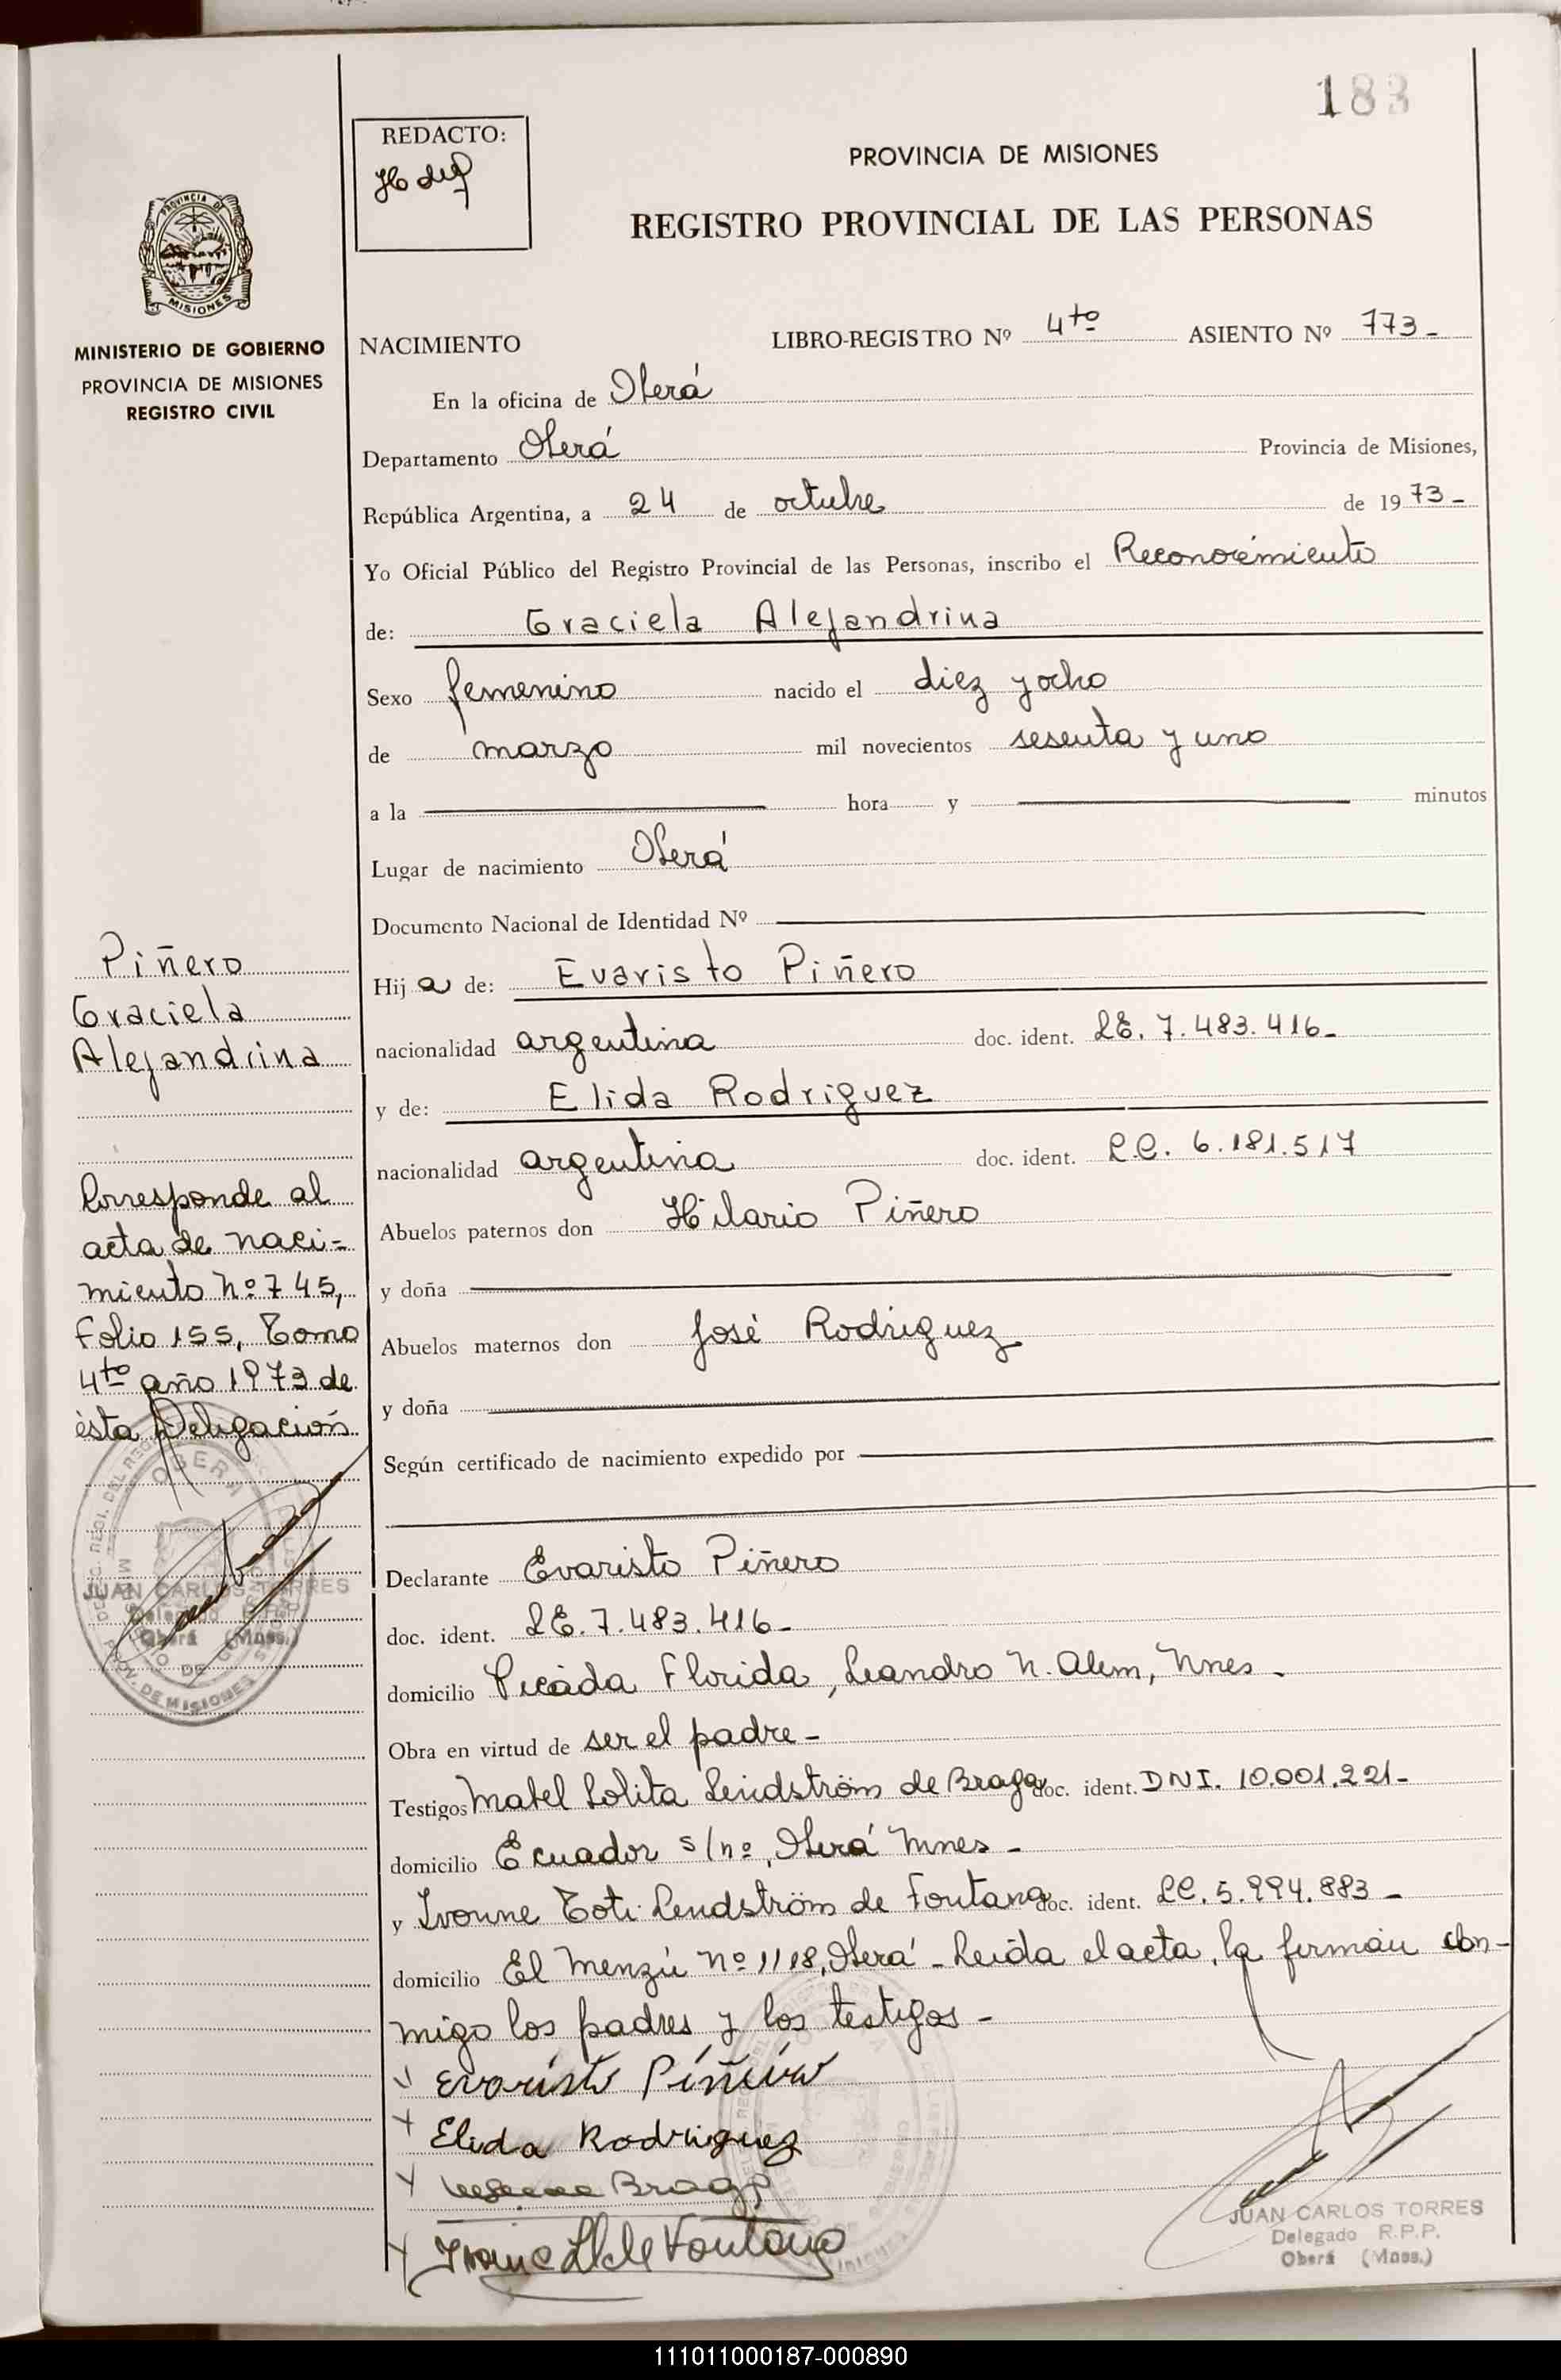 183
REDACTO:
PROVINCIA DE MISIONES
REGISTRO PROVINCIAL DE LAS PERSONAS
PROVINCIA DE
MISIONES
MINISTERIO DE GOBIERNO
PROVINCIA DE MISIONES
REGISTRO CIVIL
NACIMIENTO LIBRO-REGISTRO Nº 4to ASIENTO Nº 773-
En la oficina de Oberá
Departamento Oberá Provincia de Misiones,
República Argentina, a 24 de octubre de 1973-
Yo Oficial Público del Registro Provincial de las Personas, inscribo el Reconocimiento
de: Graciela Alejandrina
Sexo femenino nacido el diez y ocho
de marzo mil novecientos sesenta y uno
a la hora y minutos
Lugar de nacimiento Oberá
Documento Nacional de Identidad Nº
Hija de: Evaristo Piñero
nacionalidad argentina doc. ident. LE. 7.483.416-
y de: Elida Rodriguez
nacionalidad argentina doc. ident. L.C. 6.181.517
Abuelos paternos don Hilario Piñero
y doña
Abuelos maternos don José Rodriguez
y doña
Según certificado de nacimiento expedido por
Declarante Evaristo Piñero
doc. ident. LE. 7.483.416-
domicilio Picada Florida, Leandro N. Alem, Mnes-
Obra en virtud de ser el padre-
Testigos Mabel Lolita Lindström de Braga doc. ident. DNI. 10.001.221-
domicilio Ecuador s/nº, Oberá Mnes-
y Ivonne Toti Lendström de Fontana doc. ident. LC. 5.994.883-
domicilio El Menzú Nº 1118, Oberá- Leida el acta, la firman con-
migo los padres y los testigos-
Evaristo Piñeiro
Elida Rodriguez
Braga
Ivonne L de Fontana
JUAN CARLOS TORRES
Delegado R.P.P.
Oberá (Mnes.)
Piñero
Graciela
Alejandrina
Corresponde al
acta de naci-
miento Nº 745,
Folio 155, Tomo
4to año 1973 de
ésta Delegación
OBERA
JUAN CARLOS TORRES
Delegado R.P.P.
Oberá (Mnes.)
PROV. DE MISIONES
111011000187-000890